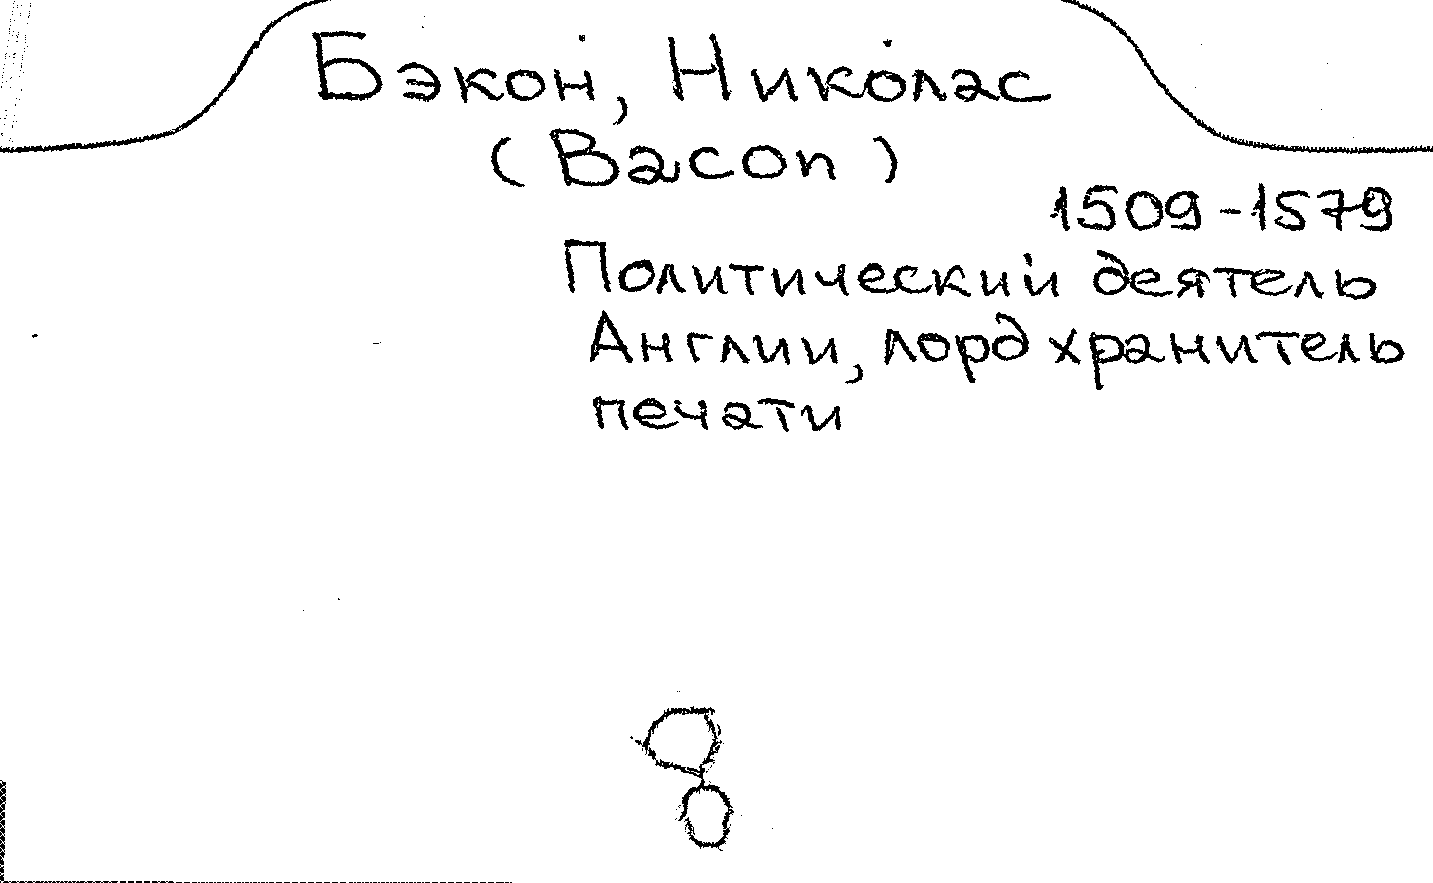 Бэкон, Николас
(Bacon)
1509-1579
Политический деятель
Англии, лорд хранитель
печати